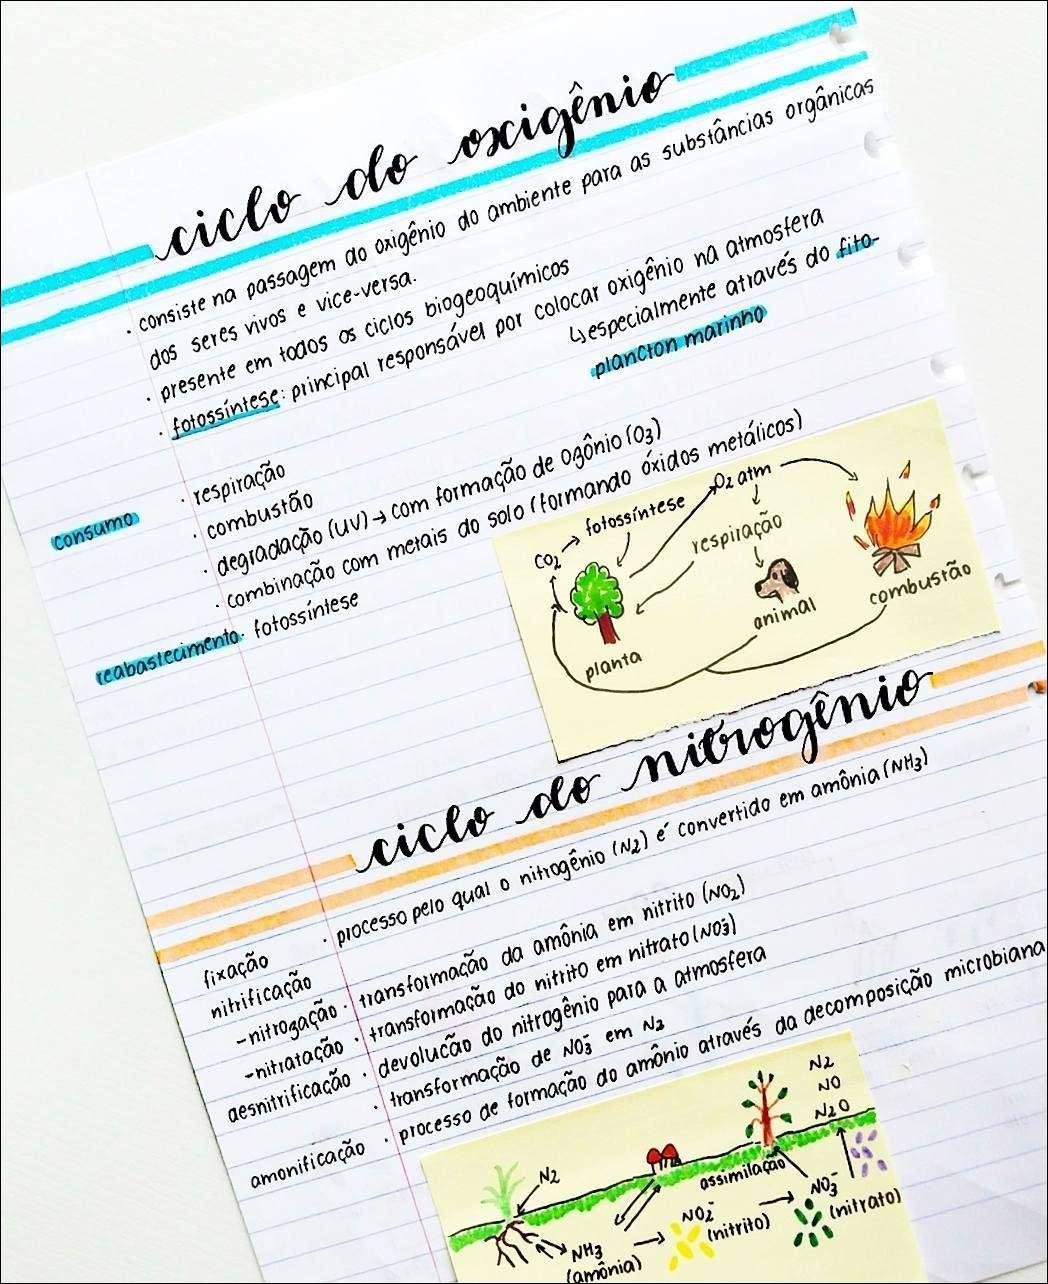 ciclo do oxigênio
· consiste na passagem do oxigênio do ambiente para as substâncias orgânicas
dos seres vivos e vice-versa.
· presente em todos os ciclos biogeoquímicos
· fotossíntese: principal responsável por colocar oxigênio na atmosfera
↳ especialmente através do fito-
plancton marinho
consumo
· respiração
· combustão
· degradação (UV) → com formação de ogônio (O3)
· combinação com metais do solo (formando óxidos metálicos)
reabastecimento · fotossíntese
CO2 → fotossíntese
O2 atm
respiração
planta
animal
combustão
ciclo do nitrogênio
fixação · processo pelo qual o nitrogênio (N2) é convertido em amônia (NH3)
nitrificação
-nitrozação · transformação da amônia em nitrito (NO2)
-nitratação · transformação do nitrito em nitrato (NO3-)
desnitrificação · devolucão do nitrogênio para a atmosfera
· transformação de NO3- em N2
amonificação · processo de formação do amônio através da decomposição microbiana
N2
NO
N2O
N2
assimilação
NH3
(amônia)
NO2-
(nitrito)
NO3-
(nitrato)